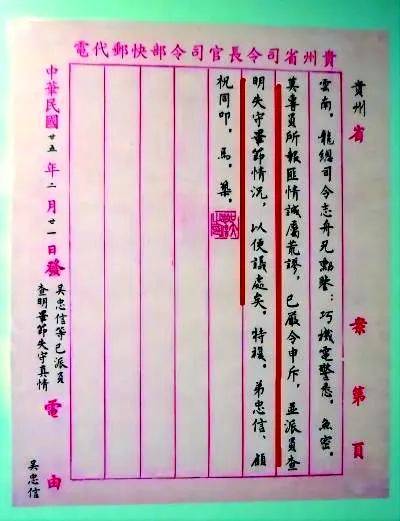 貴州省司令長官司令部快郵代電
貴州省 案第 頁
雲南。龍總司令志舟兄勳鑒:巧機電警悉。魚密。
莫專員所報匪情誠屬荒謬,已嚴令申斥,並派員查
明失守畢節情況,以便議處矣。特複。弟忠信、顧
祝同叩。馬。築。
中華民國廿五年二月廿一日發
吳忠信等已派員
查明畢節失守真情
電由
吳忠信